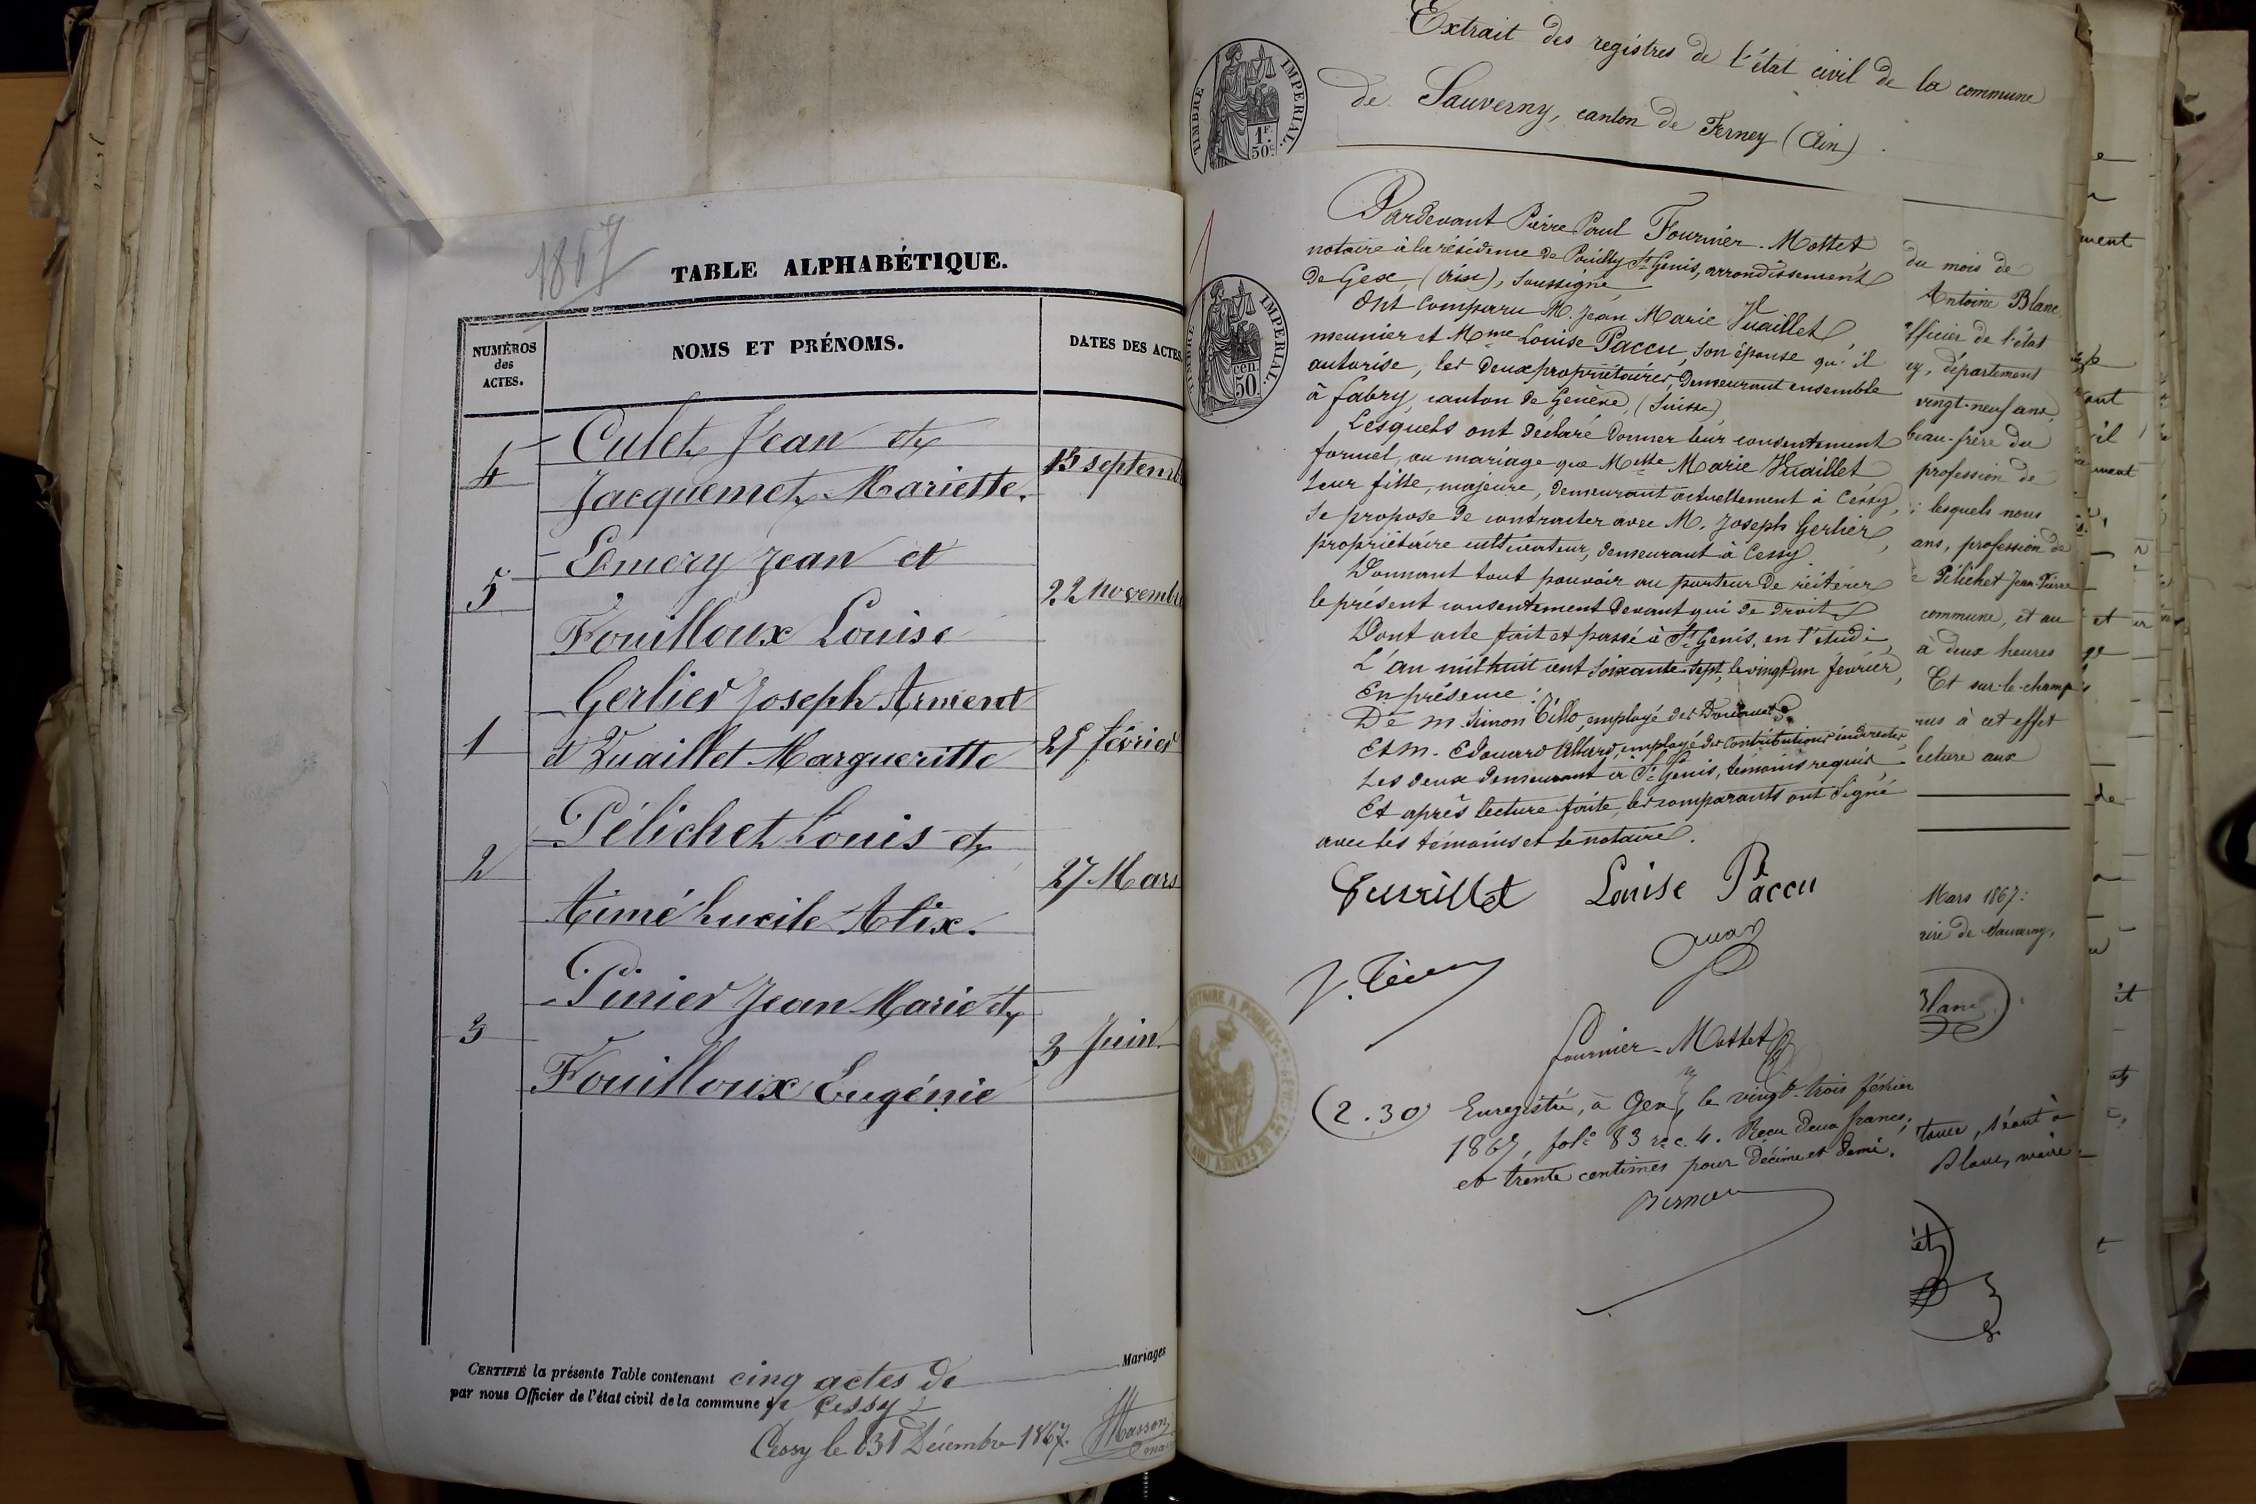 1867
TABLE ALPHABÉTIQUE.
NUMÉROS des ACTES.
NOMS ET PRÉNOMS.
DATES DES ACTES
4
Culet Jean et
Jacquemet Mariette.
15 septemb
5
Emery Jean et
Fouilloux Louise
22 novembre
1
Gerlier Joseph Armend
et Vuaillet Margueritte
25 février
2
Pélichet Louis et
Aimé Lucile Alix.
27 Mars
3
Pinier Jean Marie et
Fouilloux Eugénie
3 Juin
CERTIFIÉ la présente Table contenant cinq actes de Mariages
par nous Officier de l'état civil de la commune de Cessy
Cessy le 31 Décembre 1867.
Masson
Extrait des registres de l'état civil de la commune
de Sauverny, canton de Ferney (Ain).
TIMBRE IMPERIAL.
1F. 50c
Pardevant Pierre Paul Fournier-Mottet
notaire à la résidence de Pouilly St Genis, arrondissement
de Gex, (Ain), soussigné
Ont comparu M. Jean Marie Vuaillet
meunier et Mme Louise Paccu, son épouse qu'il
autorise, les deux propriétaires, demeurant ensemble
à fabry, canton de Genève, (Suisse)
Lesquels ont déclaré donner leur consentement
formel, au mariage que Melle Marie Vuaillet
leur fille, majeure, demeurant actuellement à Cessy,
se propose de contracter avec M. Joseph Gerlier,
propriétaire cultivateur, demeurant à Cessy.
Donnant tout pouvoir au porteur de réitérer
le présent consentement devant qui de droit
Dont acte fait et passé à St Genis, en l'étude,
L'an mil huit cent soixante-sept, le vingt un février,
En présence:
De M. Simon Tillo, employé des Douanes
Et M. Edouard Allard, employé des Contributions indirectes,
Les deux demeurant à St Genis, témoins requis
Et après lecture faite, les comparants ont signé
avec les témoins et le notaire.
TIMBRE IMPERIAL.
50 cen.
Vuaillet Louise Paccu
Fournier-Mottet
(2.30) Enregistré, à Gex, le vingt-trois février
1867, fol° 83 r° c. 4. Reçu deux francs,
et trente centimes pour décime et demi.
du mois de
Antoine Blanc,
officier de l'état
département
vingt-neuf ans,
beau-frère du
profession de
lesquels nous
ans, profession de
Pélichet Jean-Pierre
commune, et au
à deux heures
Et sur-le-champ
à cet effet
lecture aux
Mars 1867:
de Sauverny,
Blanc
séant à
Blanc, maire